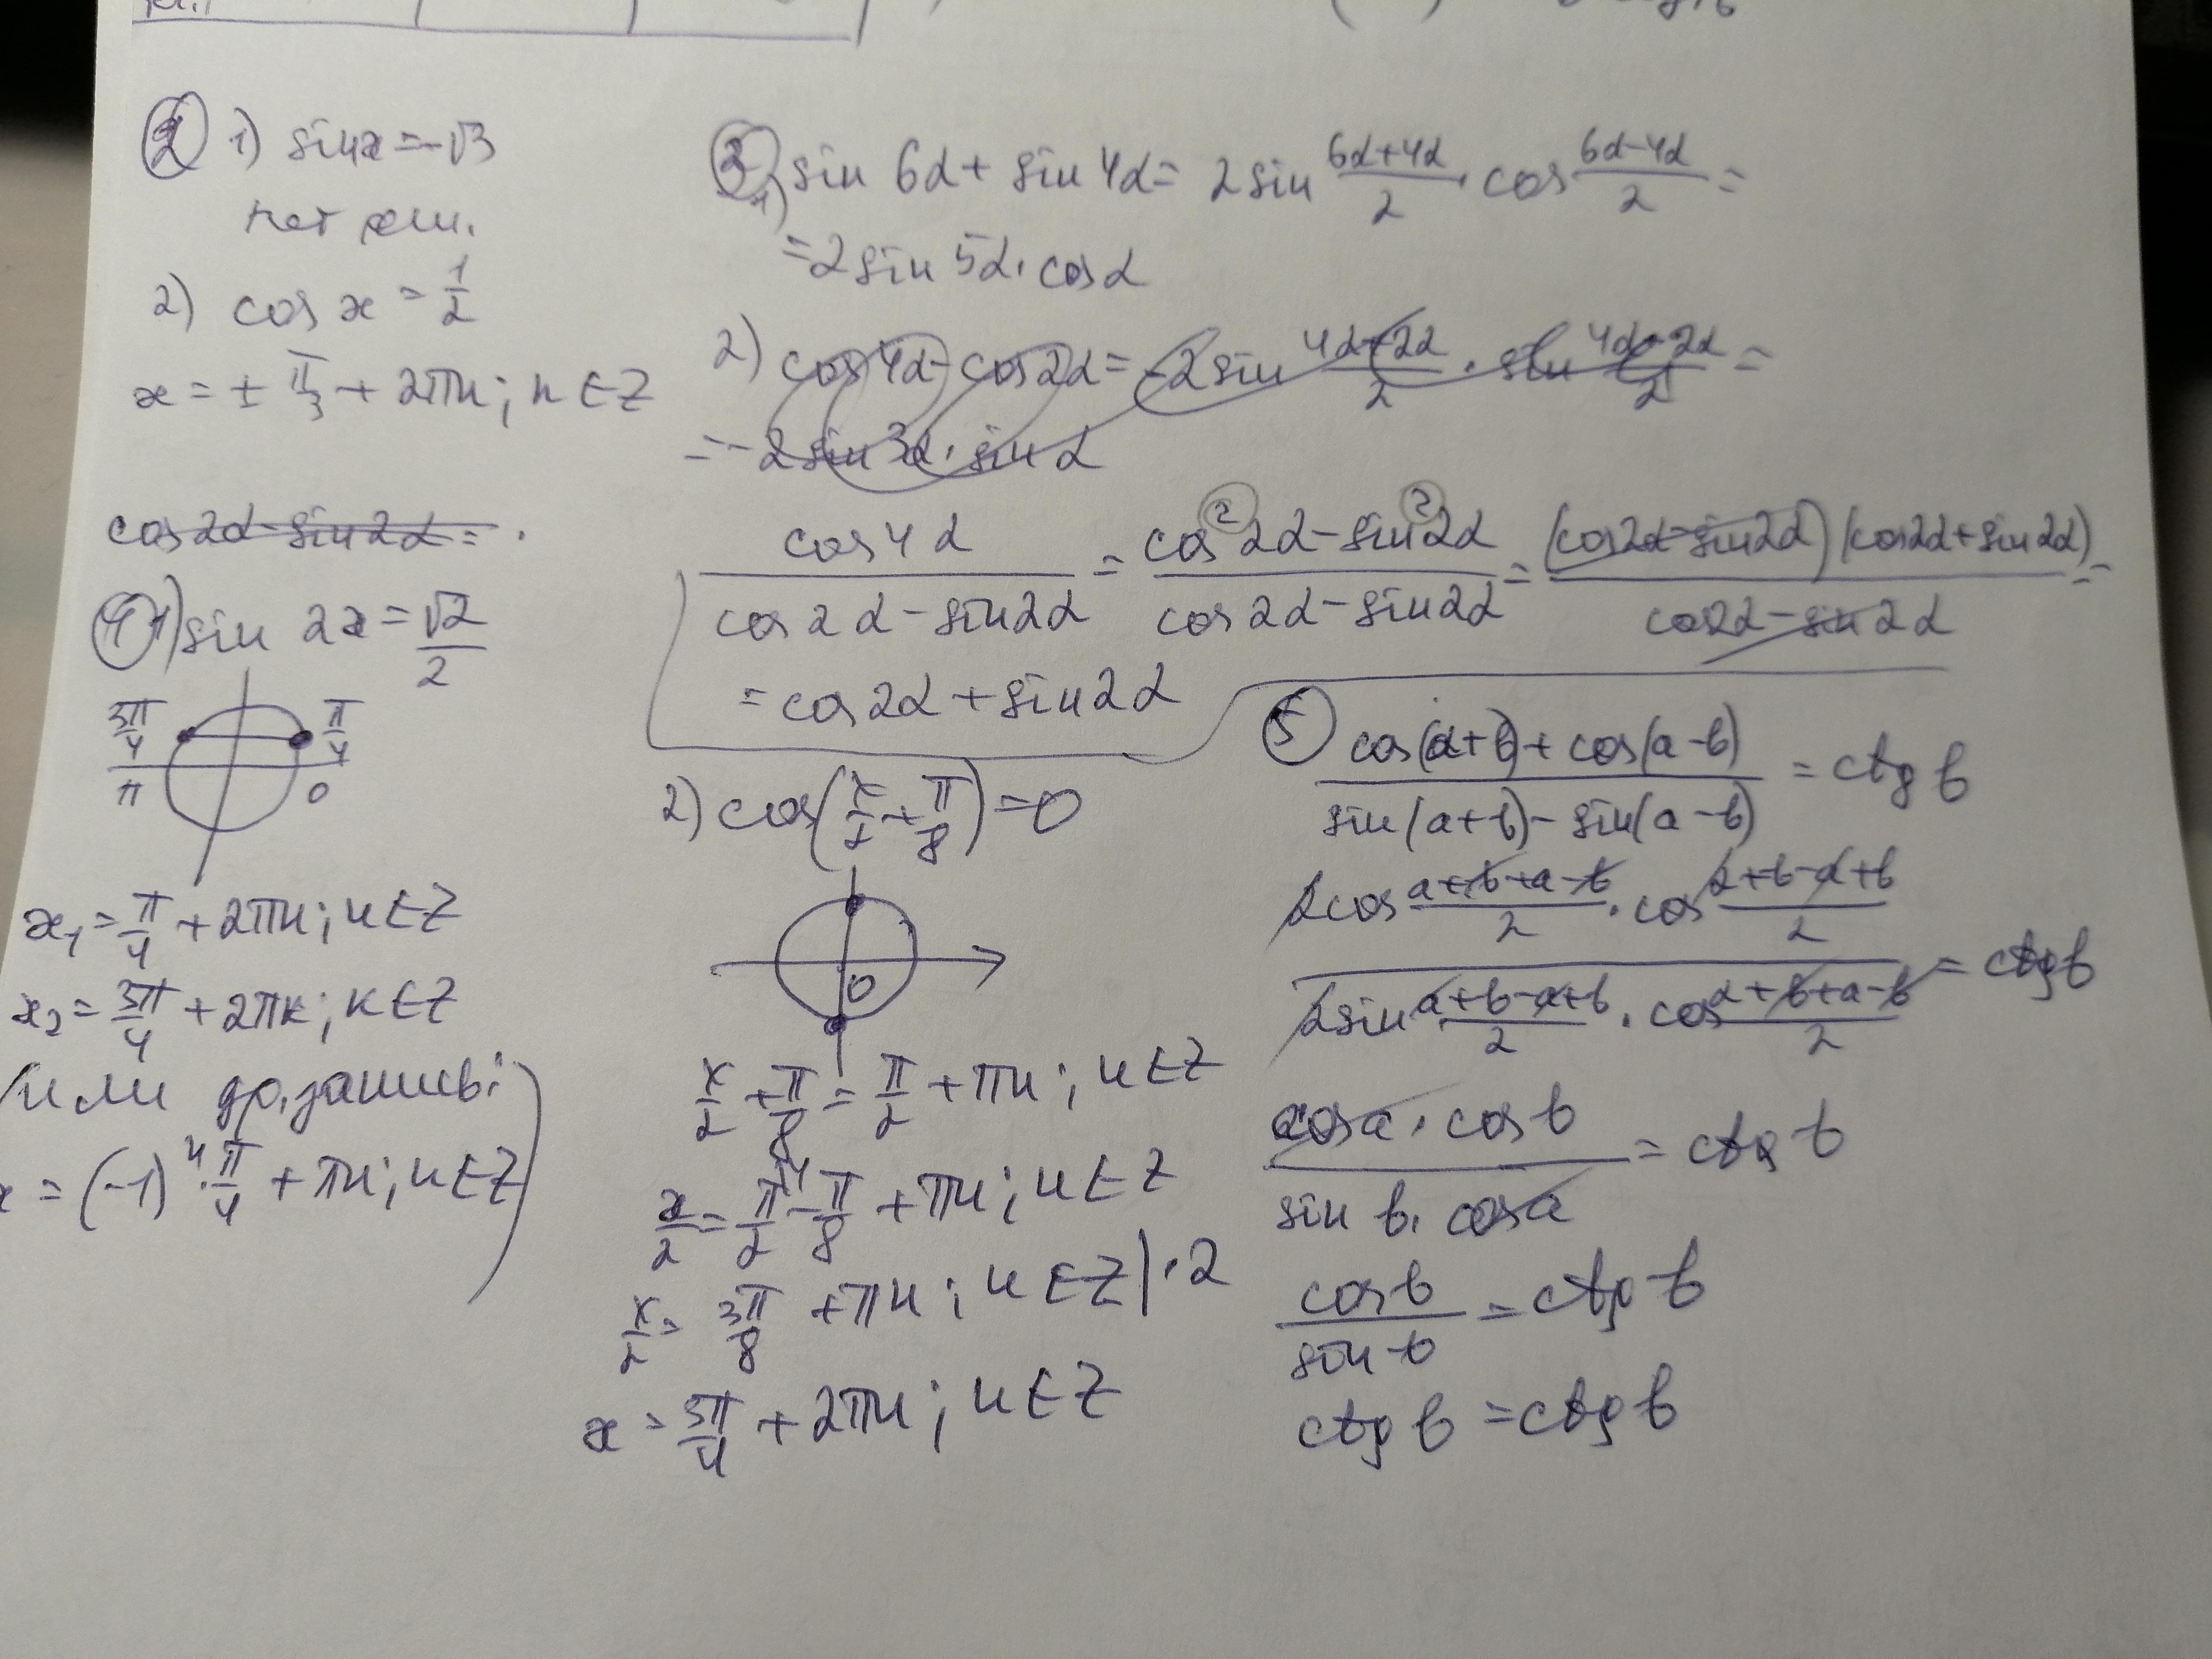 ② 1) sin x = -√3
нет реш.
2) cos x = 1/2
x = ± π/3 + 2πn; n ∈ Z
cos2α - sin2α =
④ 1) sin 2x = √2/2
3π/4 π/4
π 0
x₁ = π/4 + 2πn; n ∈ Z
x₂ = 3π/4 + 2πк; к ∈ Z
(или др. запись:
x = (-1)ⁿ · π/4 + πn; n ∈ Z)
③ 1) sin 6α + sin 4α = 2 sin (6α+4α)/2 · cos (6α-4α)/2 =
= 2 sin 5α · cos α
2) cos 4α - cos 2α = -2 sin (4α+2α)/2 · sin (4α-2α)/2 =
= -2 sin 3α · sin α
cos 4α / (cos 2α - sin 2α) = (cos² 2α - sin² 2α) / (cos 2α - sin 2α) = (cos 2α - sin 2α)(cos 2α + sin 2α) / (cos 2α - sin 2α) =
= cos 2α + sin 2α
2) cos(x/2 + π/8) = 0
0
x/2 + π/8 = π/2 + πn; n ∈ Z
x/2 = π/2 ⁴ - π/8 + πn; n ∈ Z
x/2 = 3π/8 + πn; n ∈ Z | · 2
x = 3π/4 + 2πn; n ∈ Z
⑤ (cos(a+b) + cos(a-b)) / (sin(a+b) - sin(a-b)) = ctg b
(2cos (a+b+a-b)/2 · cos (a+b-a+b)/2) / (2sin (a+b-a+b)/2 · cos (a+b+a-b)/2) = ctg b
(cos a · cos b) / (sin b · cos a) = ctg b
cos b / sin b = ctg b
ctg b = ctg b